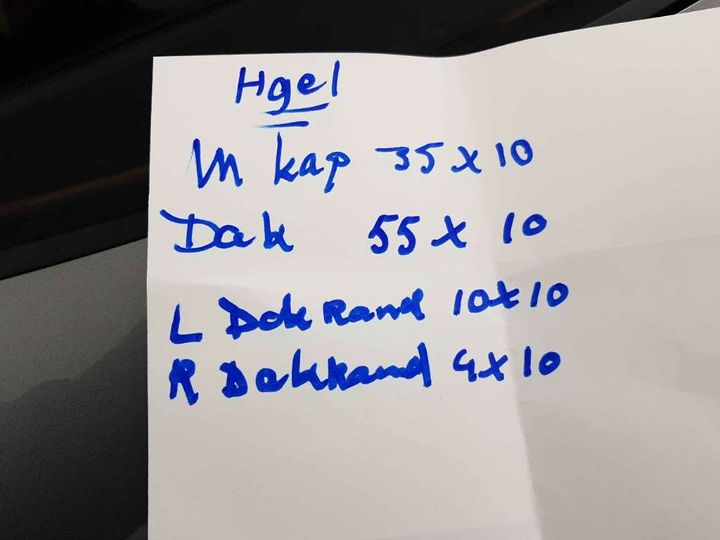 Hgel
M kap 35 x 10
Dak 55 x 10
L Dak Rand 10x10
R Dakkand 4x10